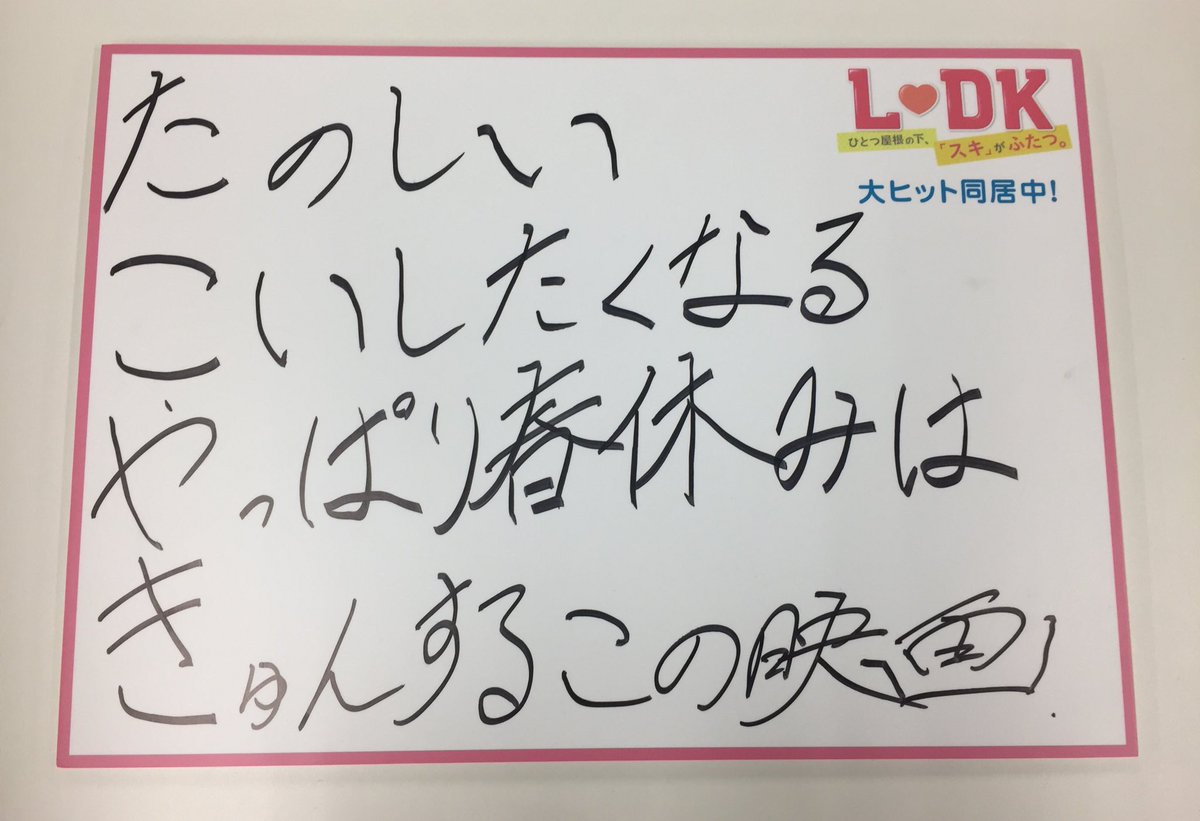 L♥DK
ひとつ屋根の下、
「スキ」がふたつ。
大ヒット同居中!
たのしい
こいしたくなる
やっぱり春休みは
きゅんするこの映画!